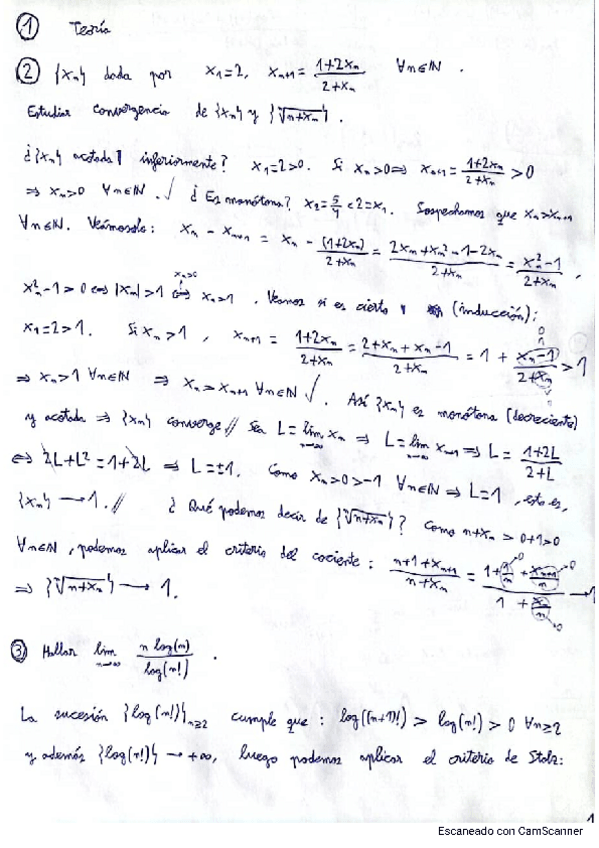 ① Teoría
② {xₙ} dada por x₁=2, xₙ₊₁ = (1+2xₙ)/(2+xₙ) ∀n∈ℕ.
Estudiar convergencia de {xₙ} y {ⁿ√(n+xₙ)}.
¿{xₙ} acotada inferiormente? x₁=2>0. Si xₙ>0 ⇒ xₙ₊₁ = (1+2xₙ)/(2+xₙ) > 0
⇒ xₙ>0 ∀n∈ℕ. √ ¿Es monótona? x₂=5/4<2=x₁. Sospechamos que xₙ>xₙ₊₁
∀n∈ℕ. Veámoslo: xₙ - xₙ₊₁ = xₙ - (1+2xₙ)/(2+xₙ) = (2xₙ+xₙ²-1-2xₙ)/(2+xₙ) = (xₙ²-1)/(2+xₙ),
xₙ²-1>0 ⇔ |xₙ|>1 ⇔ (xₙ>0) xₙ>1. Veamos si es cierto (inducción):
x₁=2>1. Si xₙ>1, xₙ₊₁ = (1+2xₙ)/(2+xₙ) = (2+xₙ+xₙ-1)/(2+xₙ) = 1 + (xₙ-1)/(2+xₙ) > 1
⇒ xₙ>1 ∀n∈ℕ ⇒ xₙ>xₙ₊₁ ∀n∈ℕ √. Así {xₙ} es monótona (decreciente)
y acotada ⇒ {xₙ} converge // Sea L = lim n→∞ xₙ ⇒ L = lim n→∞ xₙ₊₁ ⇒ L = (1+2L)/(2+L)
⇔ 2L+L²=1+2L ⇒ L=±1. Como xₙ>0>-1 ∀n∈ℕ ⇒ L=1, esto es,
{xₙ} → 1. // ¿Qué podemos decir de {ⁿ√(n+xₙ)}? Como n+xₙ > 0+1>0
∀n∈ℕ, podemos aplicar el criterio del cociente: (n+1+xₙ₊₁)/(n+xₙ) = (1+1/n+xₙ₊₁/n)/(1+xₙ/n) → 1
⇒ {ⁿ√(n+xₙ)} → 1.
③ Hallar lim n→∞ (n log(n))/(log(n!)).
La sucesión {log(n!)}ₙ≥₂ cumple que: log((n+1)!) > log(n!) > 0 ∀n≥2
y además {log(n!)} → +∞, luego podemos aplicar el criterio de Stolz:
1
Escaneado con CamScanner